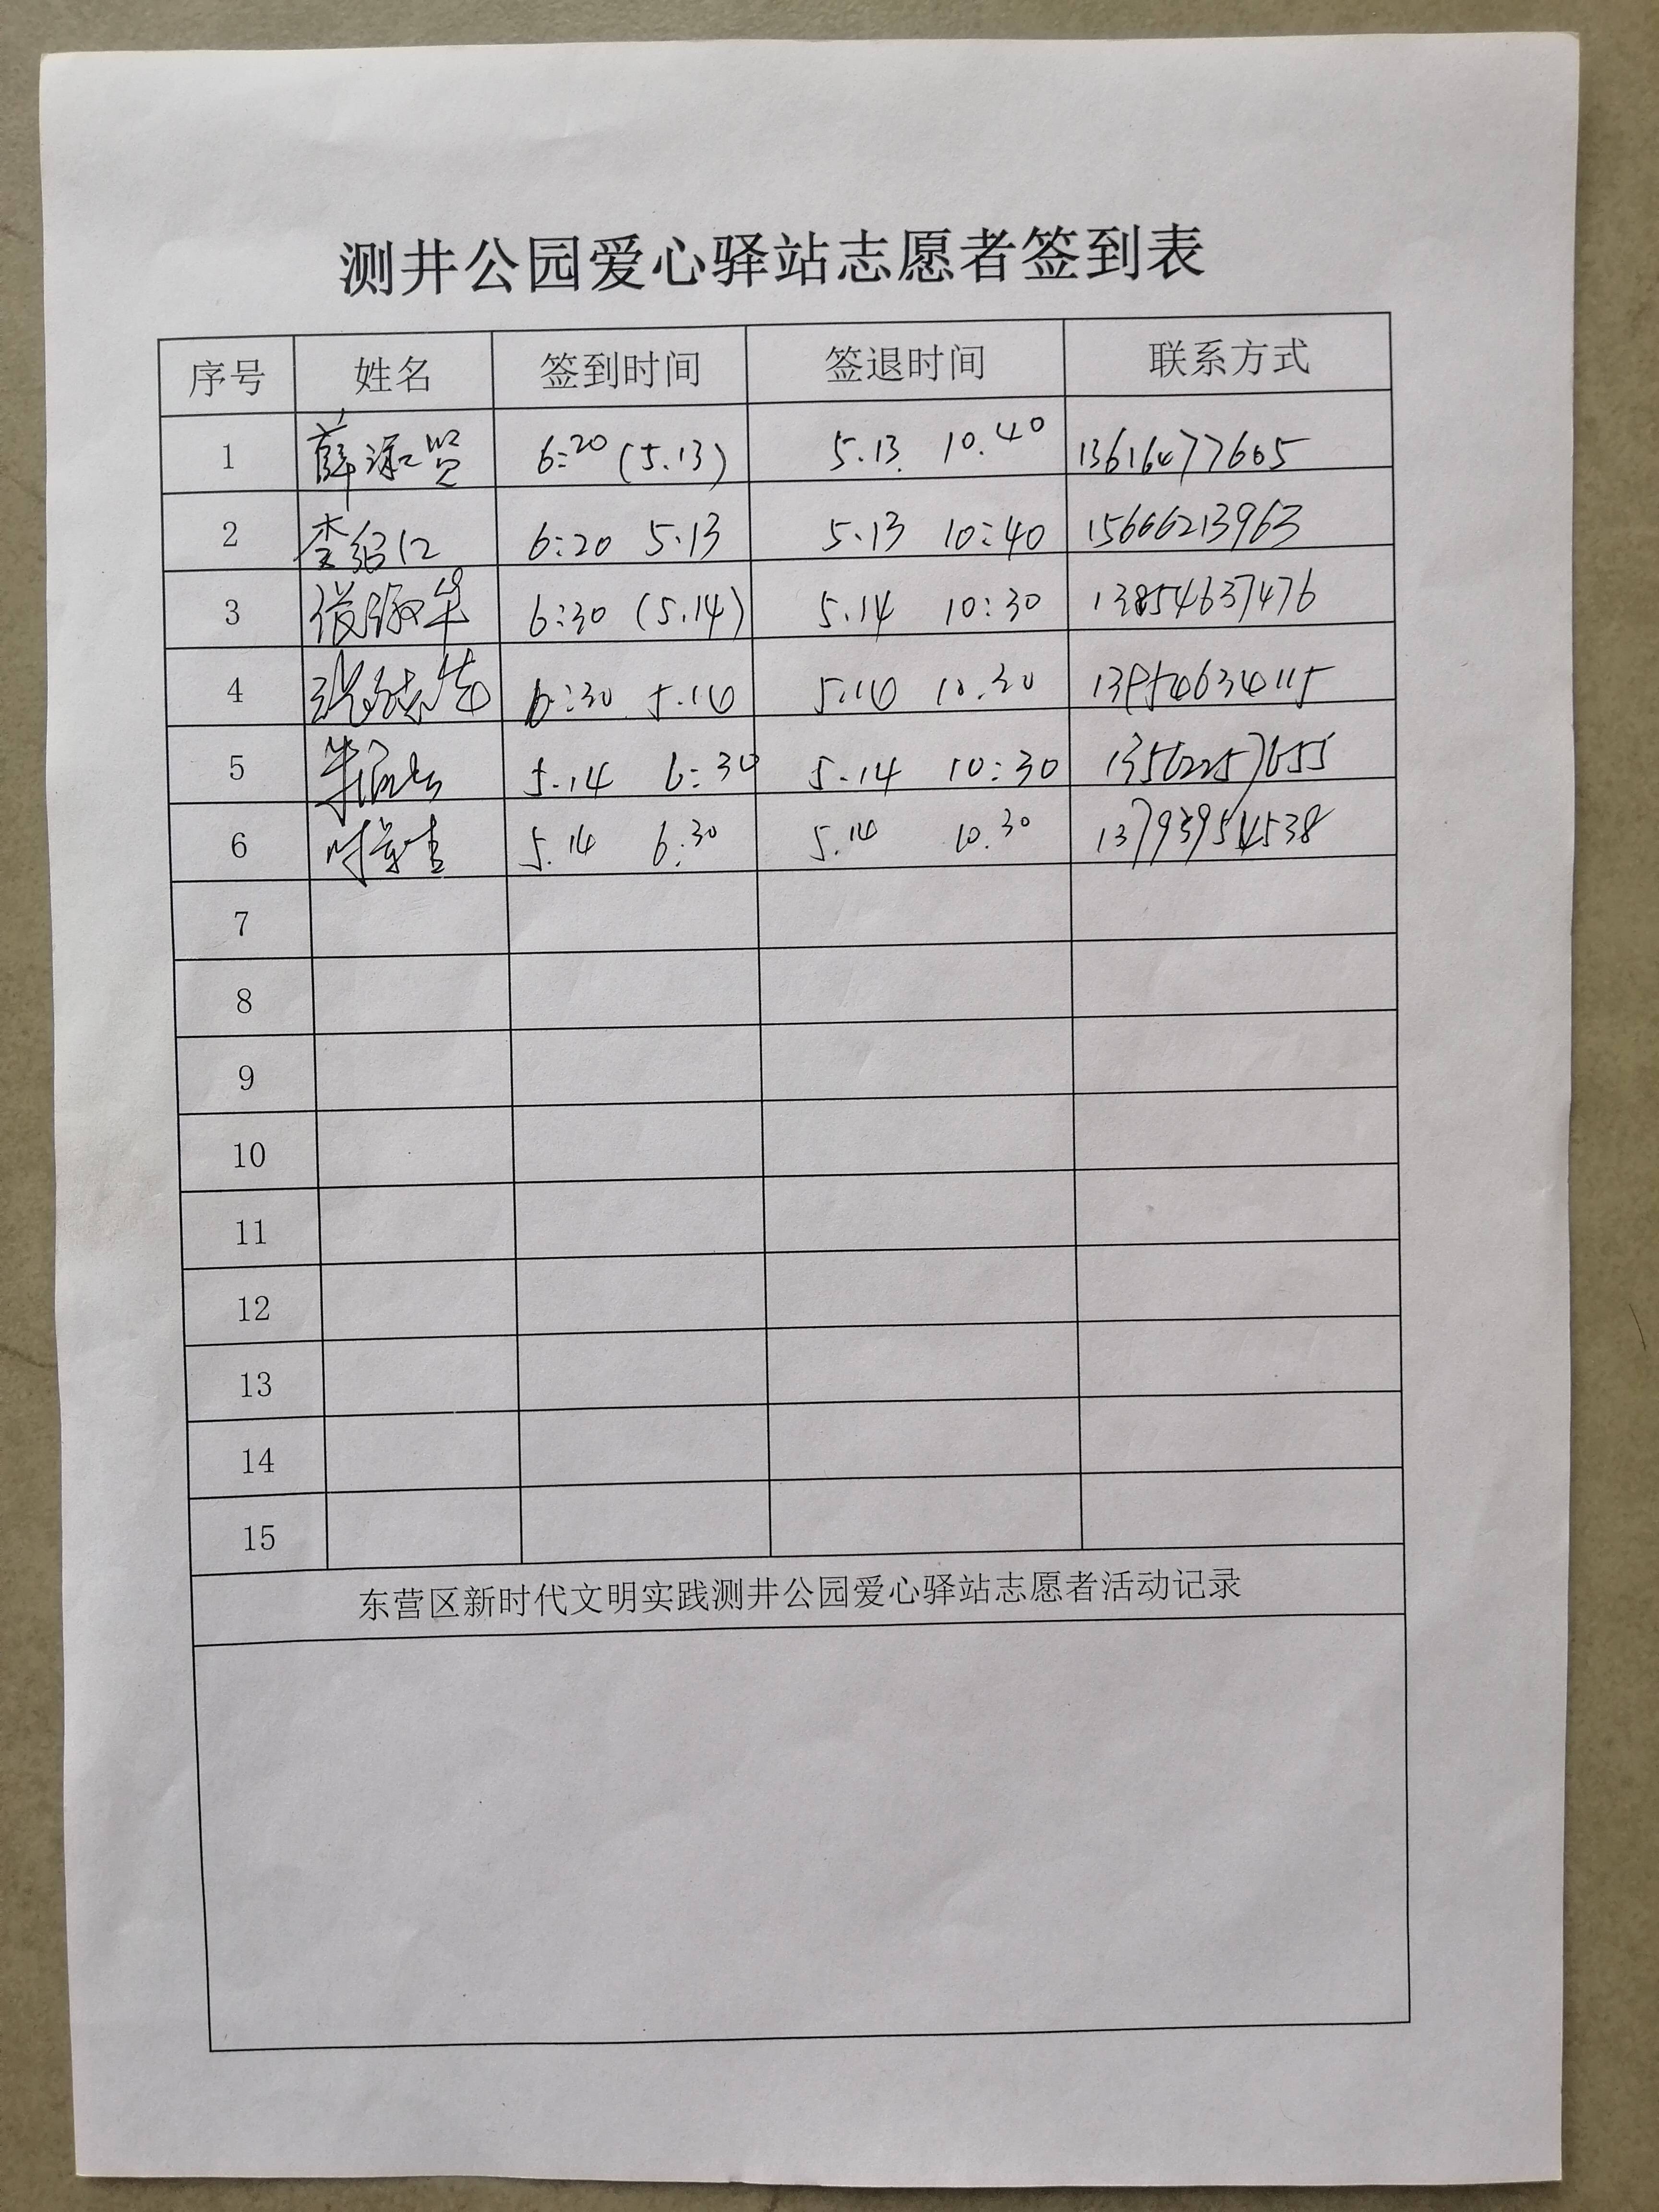 测井公园爱心驿站志愿者签到表
序号 姓名 签到时间 签退时间 联系方式
1 薛淑贤 6:20 (5.13) 5.13. 10.40 13616477605
2 李绍江 6:20 5.13 5.13 10:40 15666213963
3 6:30 (5.14) 5.14 10:30 13854637476
4 6:30 5.14 5.14 10.30 13954634115
5 5.14 6:30 5.14 10:30 13562257655
6 5.14 6:30 5.14 10.30 13793954538
7
8
9
10
11
12
13
14
15
东营区新时代文明实践测井公园爱心驿站志愿者活动记录